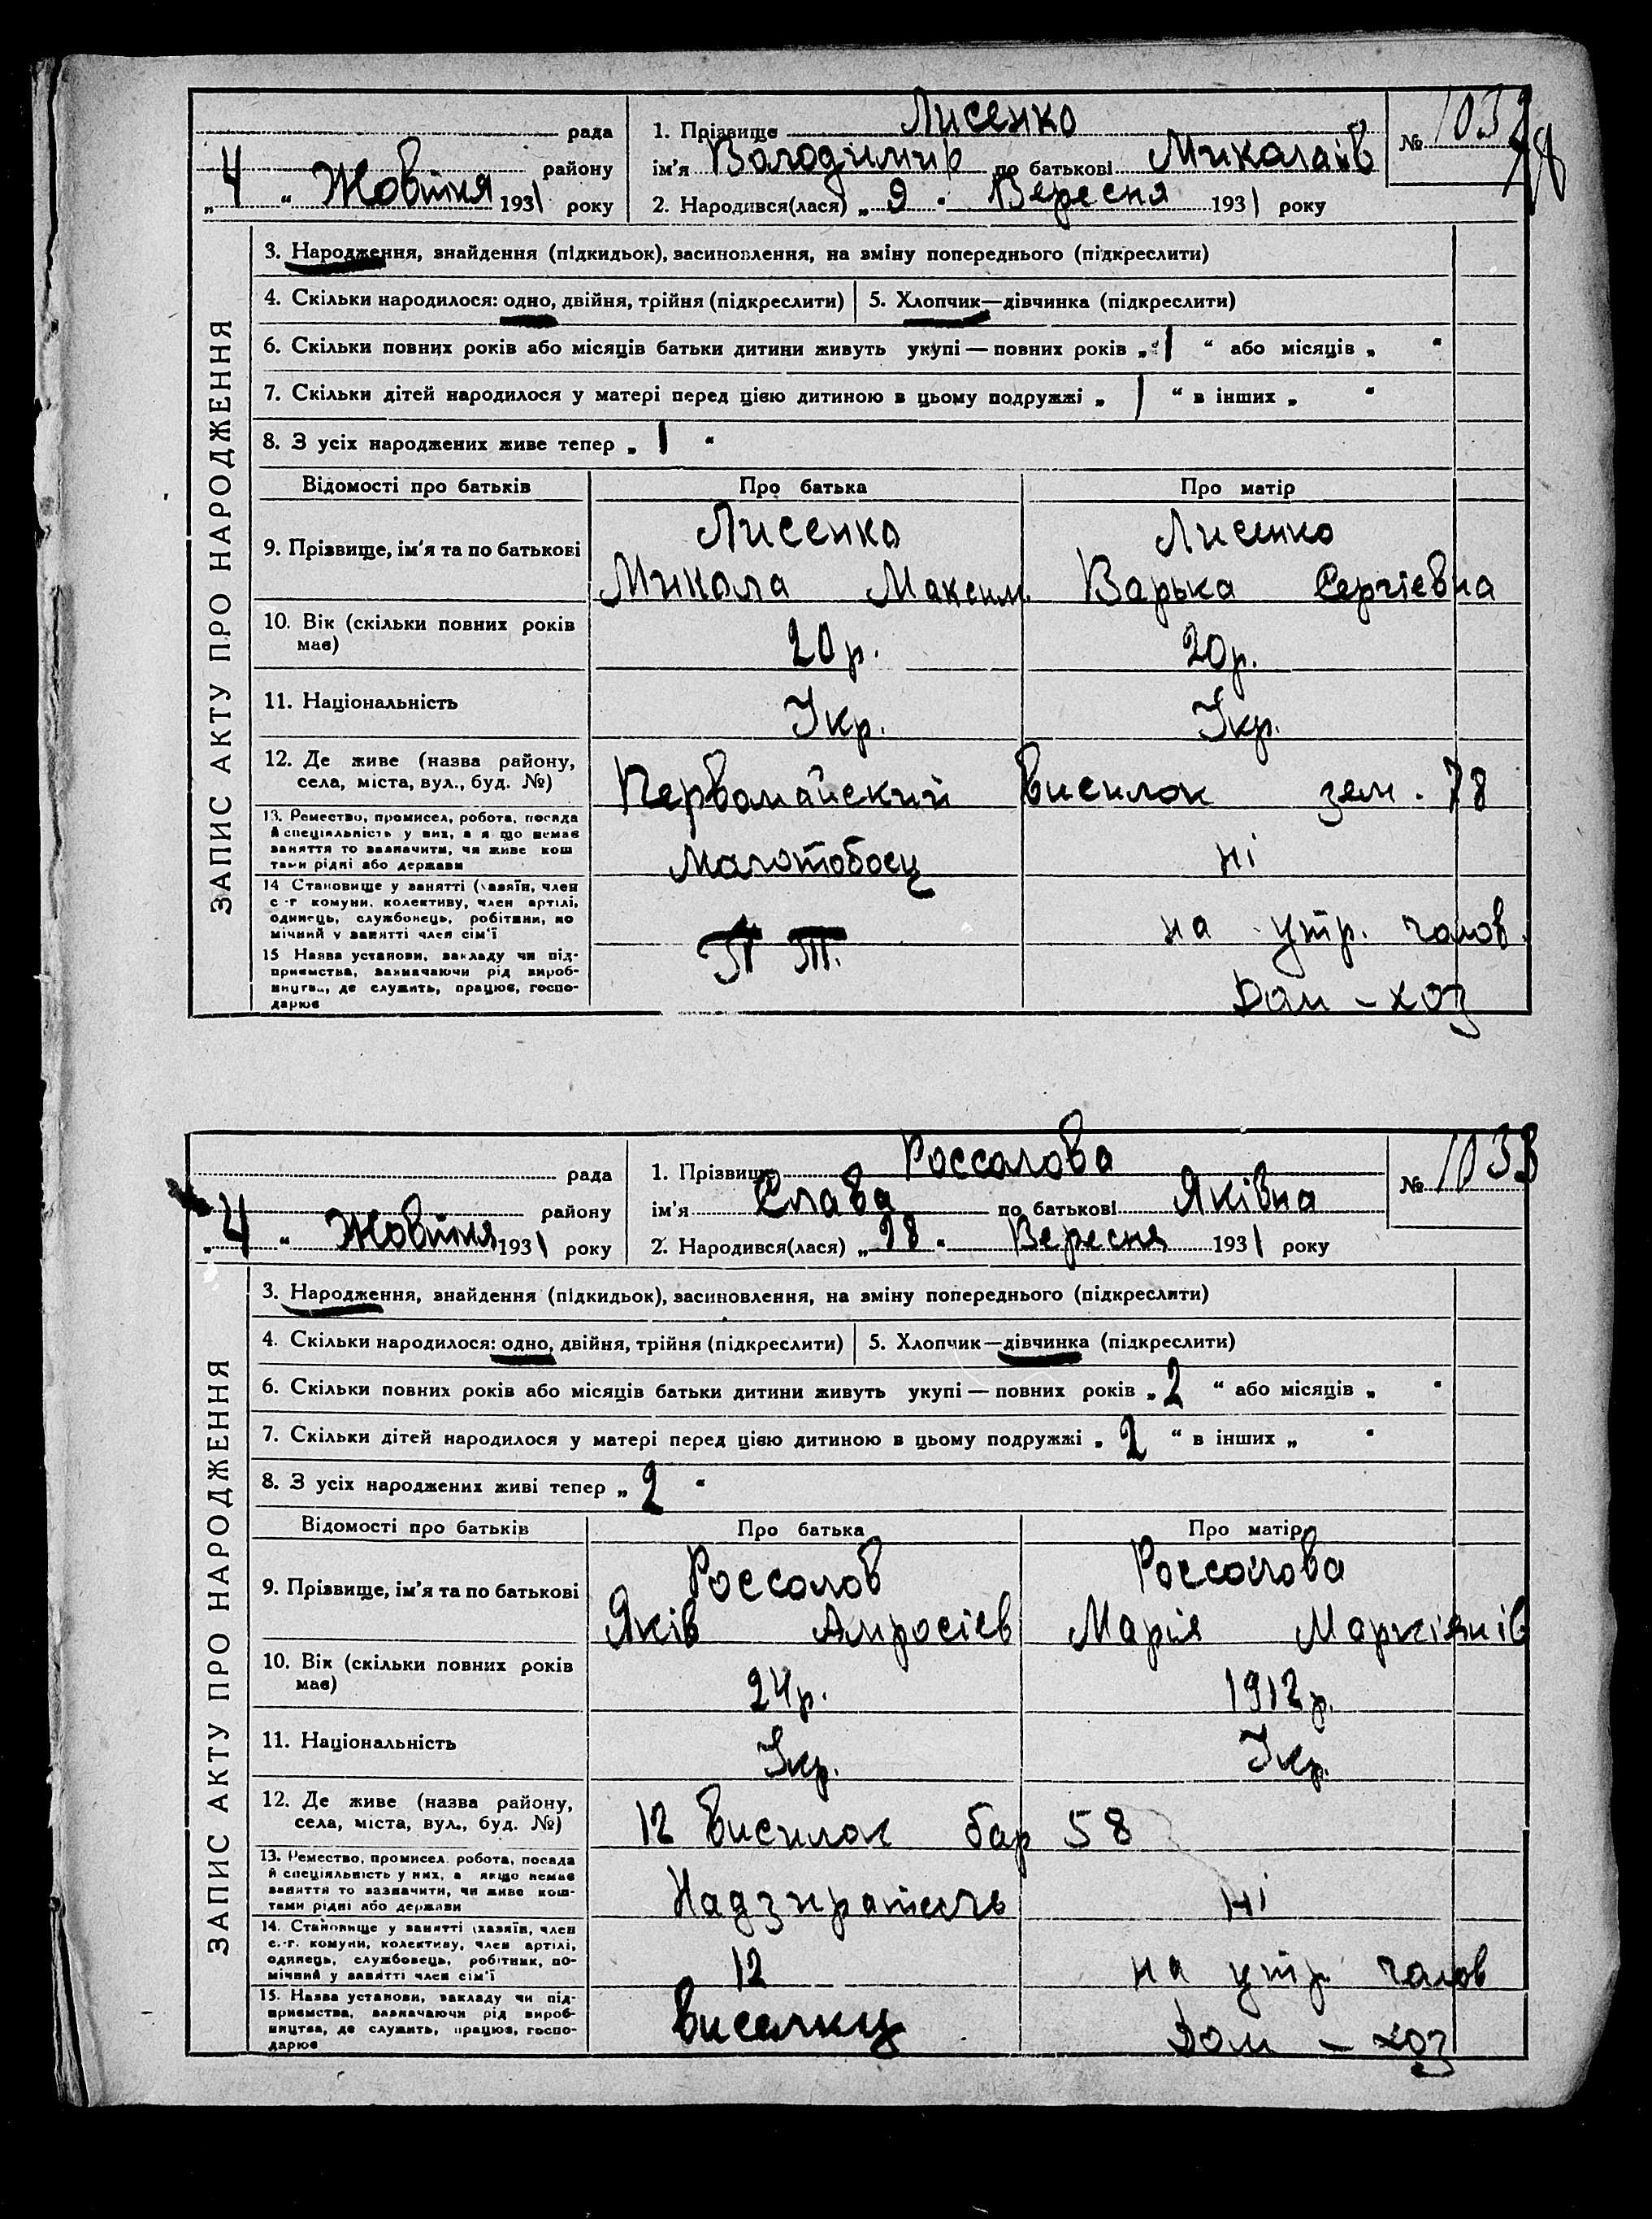 рада
району
„4“ Жовтня 1931 року
1. Прізвище Лисенко
ім'я Володимир по батькові Миколаїв
2. Народився(лася) „9“ Вересня 1931 року
№ 1032
78
ЗАПИС АКТУ ПРО НАРОДЖЕННЯ
3. Народження, знайдення (підкидьок), засиновлення, на зміну попереднього (підкреслити)
4. Скільки народилося: одно, двійня, трійня (підкреслити) 5. Хлопчик—дівчинка (підкреслити)
6. Скільки повних років або місяців батьки дитини живуть укупі — повних років „1“ або місяців „ “
7. Скільки дітей народилося у матері перед цією дитиною в цьому подружжі „1“ в інших „ “
8. З усіх народжених живе тепер „1“
Відомості про батьків Про батька Про матір
9. Прізвище, ім'я та по батькові
Лисенко Лисенко
Микола Максим. Варька Сергієвна
10. Вік (скільки повних років
має)
20р. 20р.
11. Національність Укр. Укр.
12. Де живе (назва району,
села, міста, вул., буд. №)
Первомайский висилок зем. 78
13. Ремество, промисел, робота, посада
й спеціяльність у них, а якщо немає
заняття то зазначити, чи живе кош
тами рідні або держави
Молотобоец ні
14 Становище у занятті (хазяїн, член
с.-г комуни, колективу, член артілі,
одинець, службовець, робітник, по
мічний у занятті член сім'ї
на утр. чолов.
15 Назва установи, закладу чи під-
приємства, зазначаючи рід вироб-
ництва, де служить, працює, госпо-
дарює
П Т. Дом – хоз
рада
району
„4“ Жовтня 1931 року
1. Прізвище Россолова
ім'я Слава по батькові Яківна
2. Народився(лася) „28“ Вересня 1931 року
№ 1033
ЗАПИС АКТУ ПРО НАРОДЖЕННЯ
3. Народження, знайдення (підкидьок), засиновлення, на зміну попереднього (підкреслити)
4. Скільки народилося: одно, двійня, трійня (підкреслити) 5. Хлопчик—дівчинка (підкреслити)
6. Скільки повних років або місяців батьки дитини живуть укупі — повних років „2“ або місяців „ “
7. Скільки дітей народилося у матері перед цією дитиною в цьому подружжі „2“ в інших „ “
8. З усіх народжених живі тепер „2“
Відомості про батьків Про батька Про матір
9. Прізвище, ім'я та по батькові
Россолов Россолова
Яків Амросіев Марія Маркіянів
10. Вік (скільки повних років
має)
24р. 1912р.
11. Національність Укр. Укр.
12. Де живе (назва району,
села, міста, вул., буд. №)
12 висилок бар 58
13. Ремество, промисел, робота, посада
й спеціяльність у них, а якщо немає
заняття то зазначити, чи живе кош-
тами рідні або держави
Надзиратель ні
14. Становище у занятті (хазяїн, член
с.-г. комуни, колективу, член артілі,
одинець, службовець, робітник, по-
мічний у занятті член сім'ї
12 на утр. чолов
15. Назва установи, закладу чи під-
приємства, зазначаючи рід вироб-
ництва, де служить, працює, госпо-
дарює
Дом – хоз